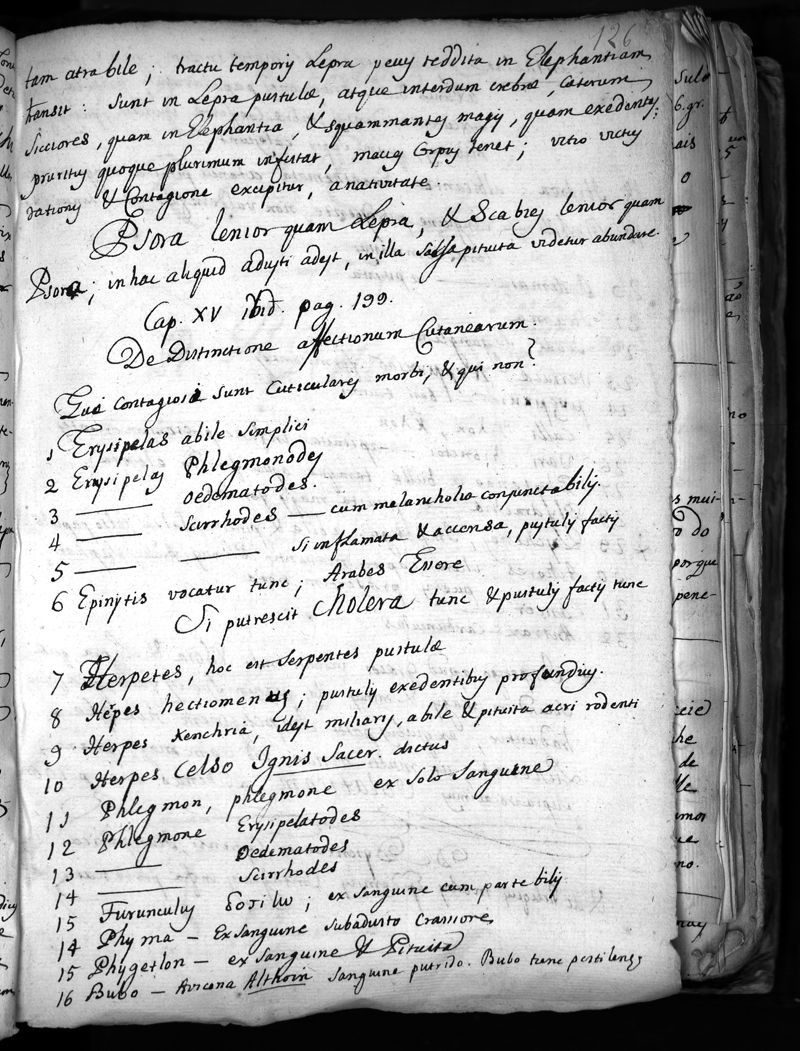 126
tam atra bile; tractu temporis Lepra peius reddita in Elephantiam
transit: sunt in Lepra pustulæ, atque interdum crebræ, cæterum
sicciores, quam in Elephantia, & squammantes magis, quam exedentes:
pruritus quoque plurimum infestat, macies Corpus tenet; vitio victus
rationis & Contagione excipitur, a nativitate.
Psora lenior quam Lepra, & Scabies lenior quam
Psora; in hac aliquid adusti adest, in illa salsa pituita videtur abundare.
Cap. XV ibid. pag. 199.
De Distinctione affectionum Cutanearum.
Quæ contagiosi sunt cuticulares morbi, & qui non?
1 Erysipelas a bile simplici
2 Erysipelas Phlegmonodes
3 ——— oedematodes.
4 ——— scirrhodes — cum melancholia conjuncta bilis.
5 ——— ——— si inflamata & accensa, pustulis factis
6 Epinytis vocatur tunc; Arabes Essere
Si putrescit cholera tunc & pustulis factis tunc
7 Herpetes, hoc est serpentes pustulæ
8 Hepes hectiomenus; pustulis exedentibus profundius.
9 Herpes xenchria, idest miliaris, a bile & pituita acri rodenti
10 Herpes Celso Ignis Sacer. dictus
11 Phlegmon, phlegmone ex solo sanguine
12 Phlegmone Erysipelatodes
13 ——— Oedematodes
14 ——— Scirrhodes
15 Furunculus ; ex sanguine cum parte bilis
14 Phyma — Ex sanguine subadusto Crassiore
15 Phygetlon — ex sanguine & Pituita
16 Bubo — Avicena Althoin sanguine putrido. Bubo tunc pestilens